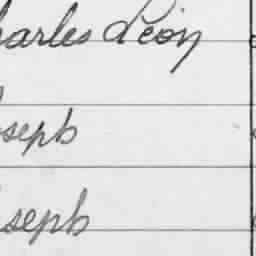 harles Léon
oseph
oseph